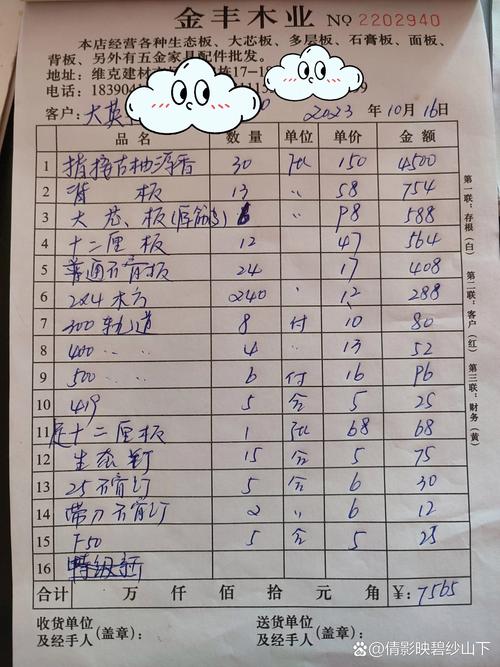 金丰木业 NO 2202940
本店经营各种生态板、大芯板、多层板、石膏板、面板、
背板、另外有五金家具配件批发。
地址：维克建材 栋17-1
电话：18390
客户：大英 2023 年 10 月 16 日
品名 数量 单位 单价 金额
1 指接古柚溶香 30 张 150 4500
2 背板 13 〃 58 754
3 大芯板 6 〃 98 588
4 十二厘板 12 〃 47 564
5 普通石膏板 24 〃 17 408
6 2x4木方 240 〃 12 288
7 300轨道 8 付 10 80
8 400 〃 〃 4 〃 13 52
9 500 〃 〃 6 付 16 96
10 419 5 合 5 25
11 足十二厘板 1 张 68 68
12 生态钉 15 合 5 75
13 25 钉 5 合 6 30
14 带刀 钉 2 〃 6 12
15 F50 5 合 5 25
16
合计 万 仟 佰 拾 元 角 ¥：7565
收货单位
及经手人（盖章）：
送货单位
及经手人（盖章）：
第一联：存根（白）
第二联：客户（红）
第三联：财务（黄）
倩影映碧纱山下